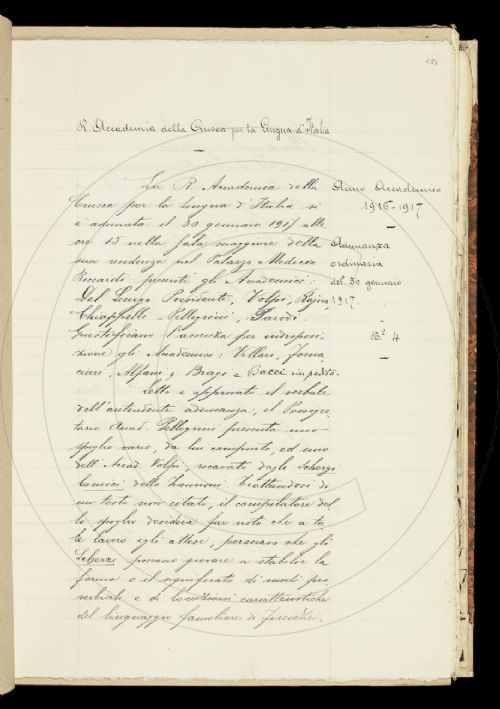 R. Accademia della Crusca per la Lingua d'Italia
La R. Accademia della
Crusca per la Lingua d'Italia si
è adunata il 30 gennaio 1917 alle
ore 15 nella sala maggiore della
sua residenza nel Palazzo Mediceo
Riccardi presenti gli Accademici:
Del Lungo Presidente, Volpi, Rajna,
Chiappelli, Pellegrini, Parodi.
Giustificano l'assenza per indisposi
zione gli Accademici: Villari, Torna
cieri, Alfani, Biagi e Bacci impedito.
Letto e approvato il verbale
dell'antecedente adunanza, il Prosegre
tario Accad. Pellegrini presenta uno
spoglio vario, da lui compiuto, ed uno
dell'Accad. Volpi, ricavato dagli Scherzi
Comici dello Zannoni. Trattandosi di
un testo non citato, il compilatore del
lo spoglio desidera far noto che a ta
le lavoro egli attese, persuaso che gli
Scherzi possano giovare a stabilir la
forma o il significato di modi pro
verbiali e di locuzioni caratteristiche
del linguaggio familiare di Firenze.
Anno Accademico
1916-1917
Adunanza
ordinaria
del 30 gennaio
1917
N.° 4